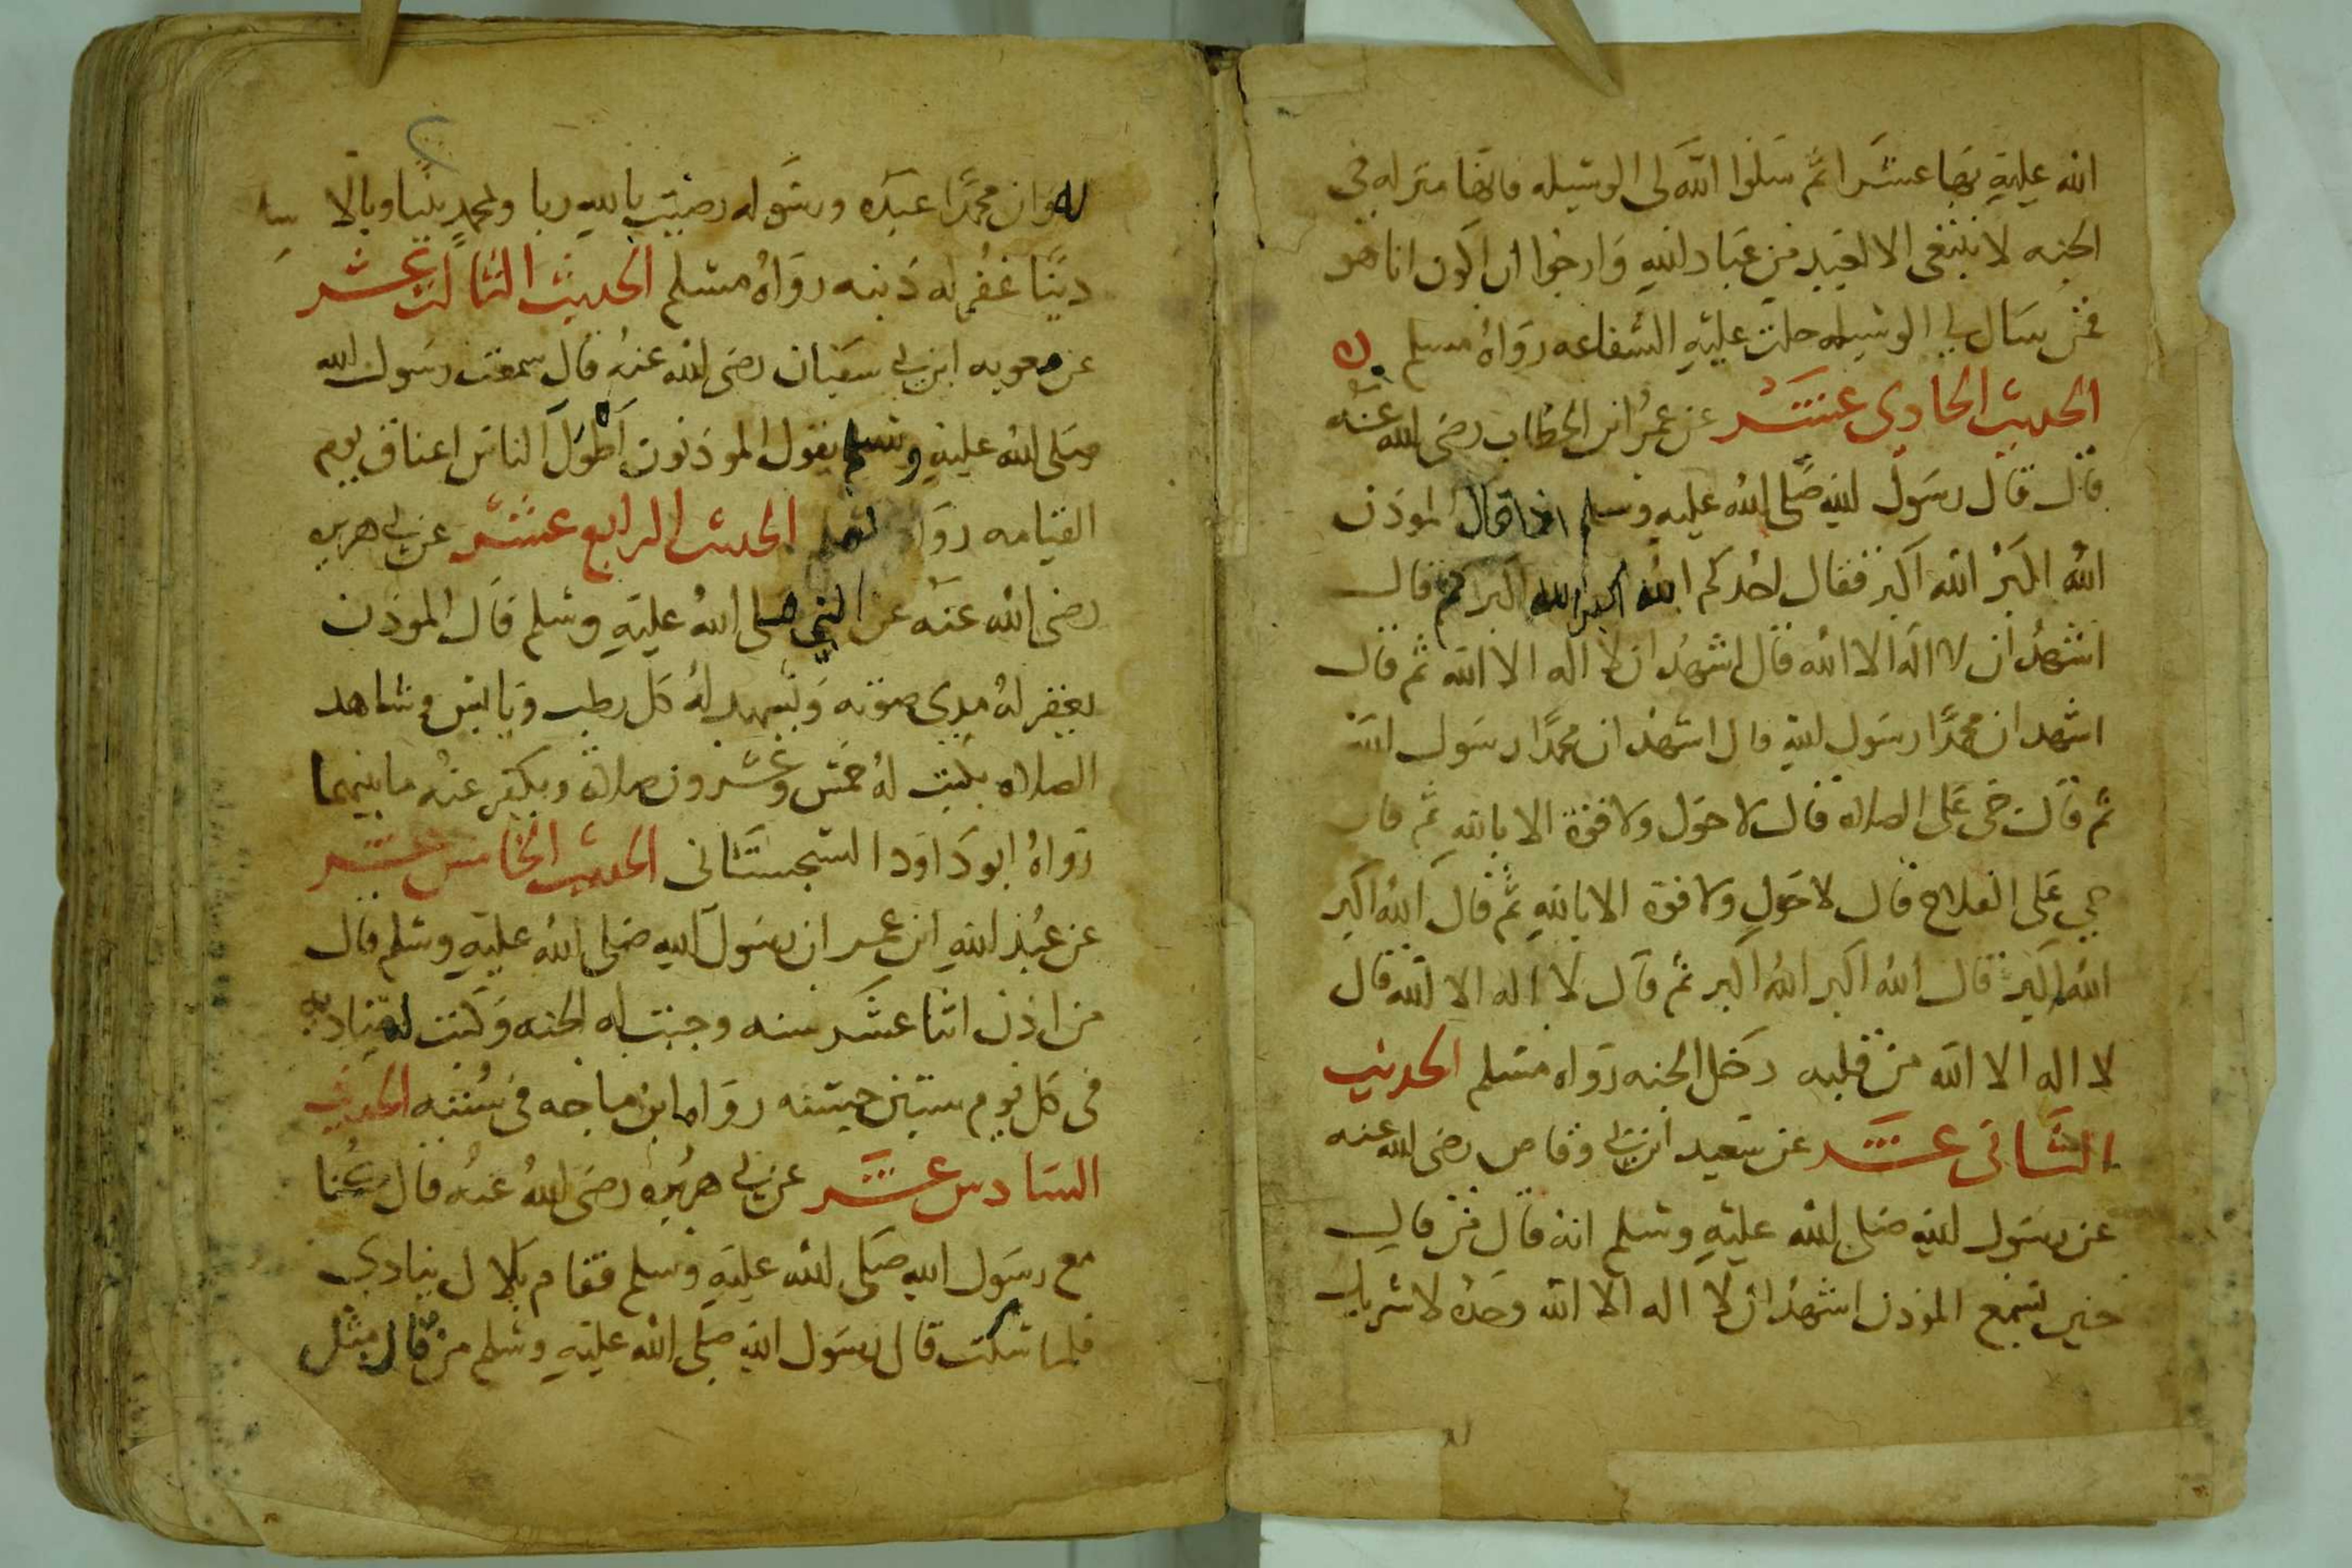 الله عليه بها عشرا ثم سلوا الله لى الوسيله فانها منزله فى
الجنه لا ينبغى الا لعبد من عباد الله وارجوا ان اكون انا هو
فمن سال لى الوسيله حلت عليه الشفاعه رواه مسلم
الحديث الحادى عشر عن عمر ابن الخطاب رضى الله عنه
قال قال رسول الله صلى الله عليه وسلم اذا قال الموذن
الله اكبر الله اكبر فقال احدكم الله اكبر الله اكبر ثم قال
اشهد ان لا اله الا الله قال اشهد ان لا اله الا الله ثم قال
اشهد ان محمدا رسول الله قال اشهد ان محمدا رسول الله
ثم قال حى على الصلاه قال لا حول ولا قوة الا بالله ثم قال
حي على الفلاح قال لا حول ولا قوة الا بالله ثم قال الله اكبر
الله اكبر قال الله اكبر الله اكبر ثم قال لا اله الا الله قال
لا اله الا الله من قلبه دخل الجنه رواه مسلم الحديث
الثانى عشر عن سعيد ابن ابى وقاص رضى الله عنه
عن رسول الله صلى الله عليه وسلم انه قال من قال
حين يسمع الموذن اشهد ان لا اله الا الله وحده لا شريك
له وان محمدا عبده ورسوله رضيت بالله ربا وبمحمد نبيا وبالا
دينا غفر له ذنبه رواه مسلم الحديث الثالث عشر
عن معويه ابن ابى سفيان رضى الله عنه قال سمعت رسول الله
صلى الله عليه وسلم يقول الموذنون اطول الناس اعناق يوم
القيامه رواه الحديث الرابع عشر عن ابى هريره
رضى الله عنه عن النبي صلى الله عليه وسلم قال الموذن
يغفر له مدى صوته ويشهد له كل رطب ويابس وشاهد
الصلاه يكتب له خمس وعشرون صلاة ويكفر عنه ما بينهما
رواه ابو داود السجستانى الحديث الخامس عشر
عن عبد الله ابن عمر ان رسول الله صلى الله عليه وسلم قال
من اذن اثنا عشر سنه وجبت له الجنه وكتب له
فى كل يوم ستين حسنه رواه ابن ماجه فى سننه الحديث
السادس عشر عن ابى هريره رضى الله عنه قال كنا
مع رسول الله صلى الله عليه وسلم فقام بلال ينادي
فلما سكت قال رسول الله صلى الله عليه وسلم من قال مثل